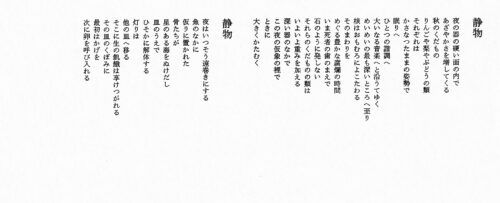 静物
夜の器の硬い面の内で
あざやかさを増してくる
秋のくだもの
りんごや梨やぶどうの類
それぞれは
かさなったままの姿勢で
眠りへ
ひとつの諧調へ
大いなる音楽へと沿うてゆく
めいめいの最も深いところへ至り
核はおもむろによこたわる
そのまわりを
めぐる豊かな腐爛の時間
いま死者の歯のまえで
石のように発しない
それらのくだものの類は
いよいよ重みを加える
深い器のなかで
この夜の仮象の裡で
ときに
大きくかたむく
静物
夜はいっそう遠巻きにする
魚のなかに
仮りに置かれた
骨たちが
星のある海をぬけだし
皿のうえで
ひそかに解体する
灯りは
他の皿へ移る
そこに生の飢餓は享けつがれる
その皿のくぼみに
最初はかげを
次に卵を呼び入れる